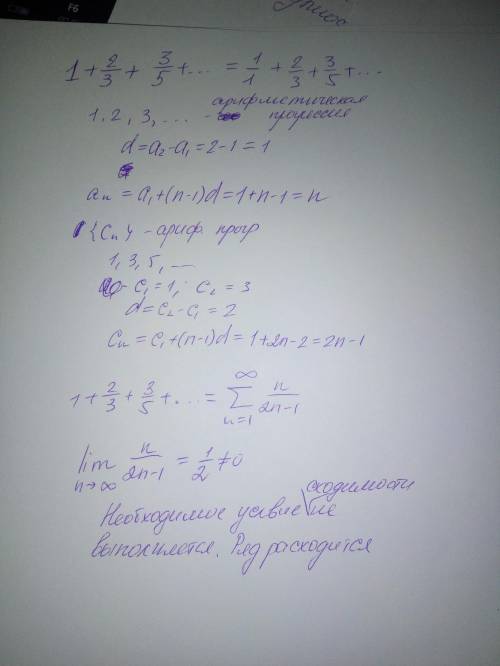 F6
1 + 2/3 + 3/5 + ... = 1/1 + 2/3 + 3/5 + ...
1, 2, 3, ... - арифметическая прогрессия
d = a₂ - a₁ = 2 - 1 = 1
aₙ = a₁ + (n-1)d = 1 + n - 1 = n
{cₙ} - ариф. прогр
1, 3, 5, ...
c₁ = 1; c₂ = 3
d = c₂ - c₁ = 2
cₙ = c₁ + (n-1)d = 1 + 2n - 2 = 2n - 1
1 + 2/3 + 3/5 + ... = ∑_{n=1}^{∞} n/(2n-1)
lim_{n→∞} n/(2n-1) = 1/2 ≠ 0
Необходимое условие сходимости не
выполняется. Ряд расходится